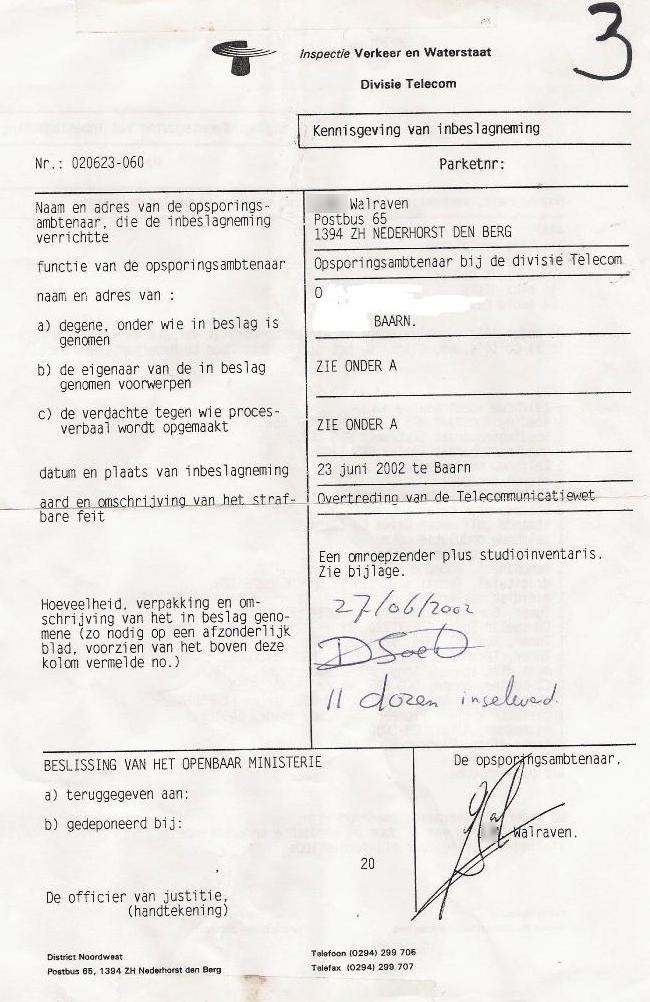 3
Inspectie Verkeer en Waterstaat
Divisie Telecom
Kennisgeving van inbeslagneming
Nr.: 020623-060
Parketnr:
Naam en adres van de opsporings-
ambtenaar, die de inbeslagneming
verrichtte
Walraven
Postbus 65
1394 ZH NEDERHORST DEN BERG
functie van de opsporingsambtenaar
Opsporingsambtenaar bij de divisie Telecom
naam en adres van :
O
a) degene, onder wie in beslag is
genomen
BAARN.
b) de eigenaar van de in beslag
genomen voorwerpen
ZIE ONDER A
c) de verdachte tegen wie proces-
verbaal wordt opgemaakt
ZIE ONDER A
datum en plaats van inbeslagneming
23 juni 2002 te Baarn
aard en omschrijving van het straf-
bare feit
Overtreding van de Telecommunicatiewet
Een omroepzender plus studioinventaris.
Zie bijlage.
Hoeveelheid, verpakking en om-
schrijving van het in beslag geno-
mene (zo nodig op een afzonderlijk
blad, voorzien van het boven deze
kolom vermelde no.)
27/06/2002
11 dozen ingeleverd.
BESLISSING VAN HET OPENBAAR MINISTERIE
a) teruggegeven aan:
b) gedeponeerd bij:
20
De officier van justitie,
(handtekening)
De opsporingsambtenaar,
Walraven.
District Noordwest
Postbus 65, 1394 ZH Nederhorst den Berg
Telefoon (0294) 299 706
Telefax (0294) 299 707